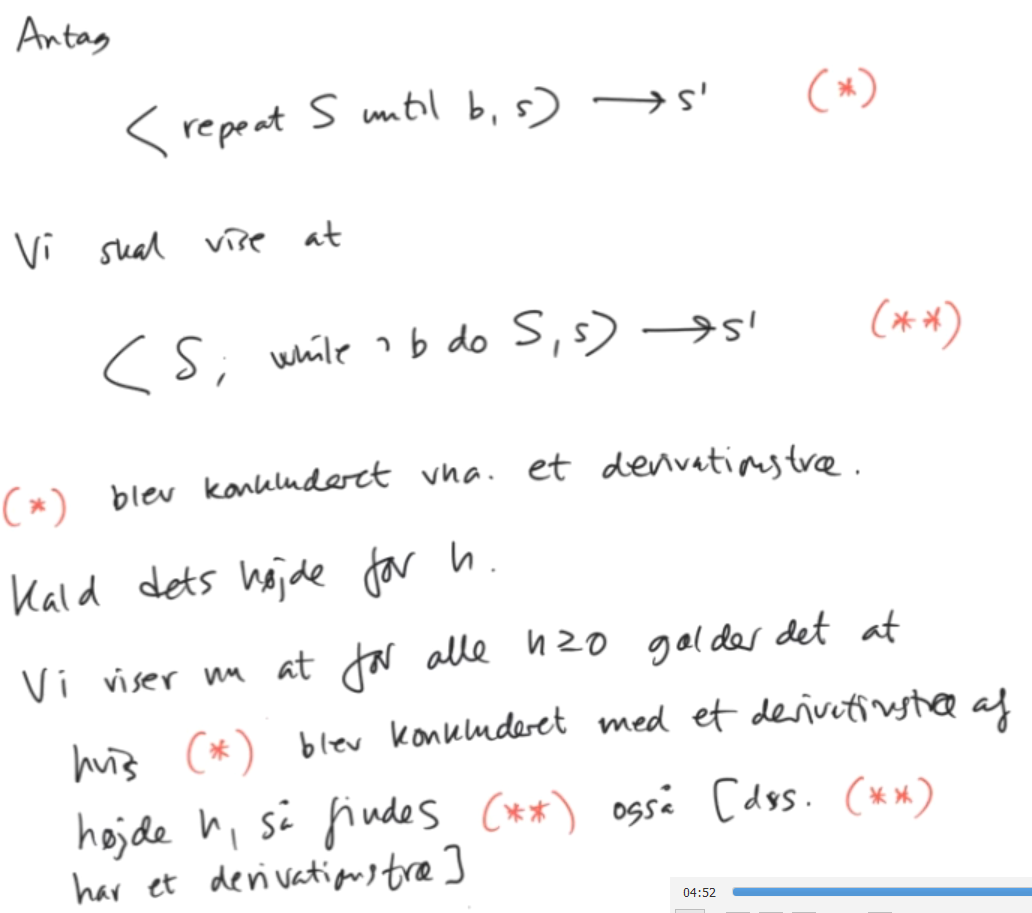 Antag
< repeat S until b, s> → s' (*)
Vi skal vise at
< S; while ¬ b do S, s> → s' (**)
(*) blev konkluderet vha. et derivationstræ.
Kald dets højde for h.
Vi viser nu at for alle h≥0 gælder det at
hvis (*) blev konkluderet med et derivationstræ af
højde h, så findes (**) også [dvs. (**)
har et derivationstræ]
04:52